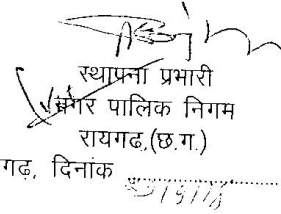 स्थापना प्रभारी
नगर पालिक निगम
रायगढ,(छ.ग.)
गढ़, दिनांक